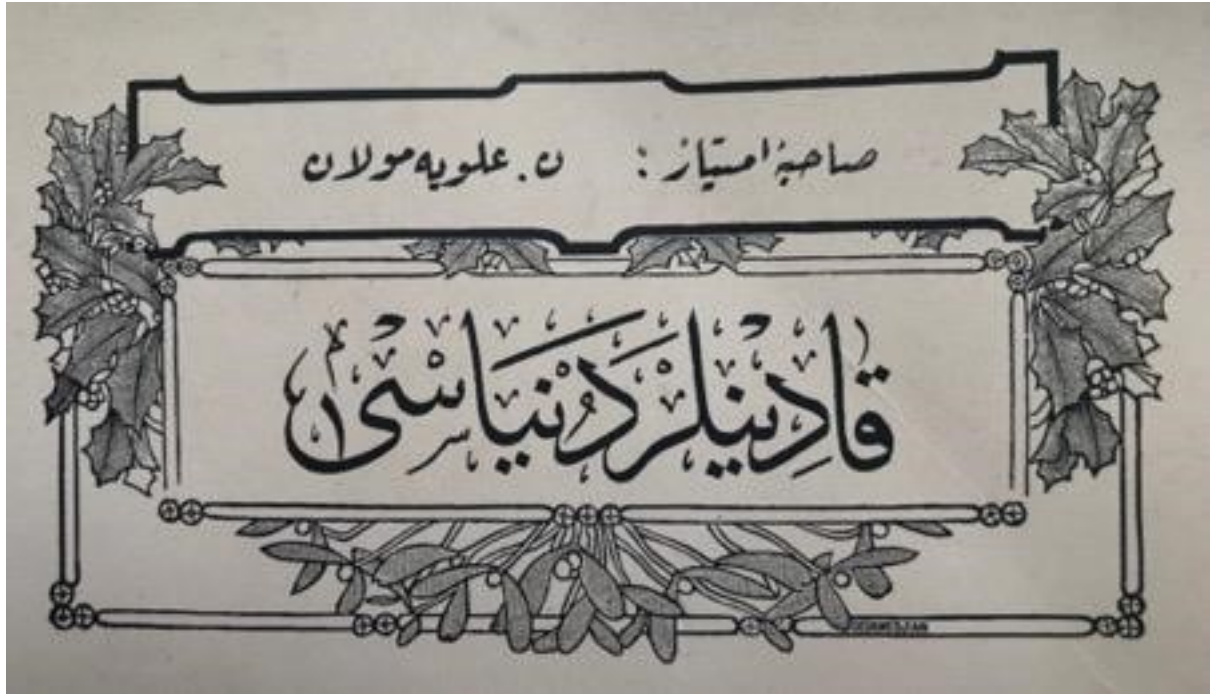 صاحبهٔ امتیاز : ن . علویه مولان
قادینلر دنیاسی